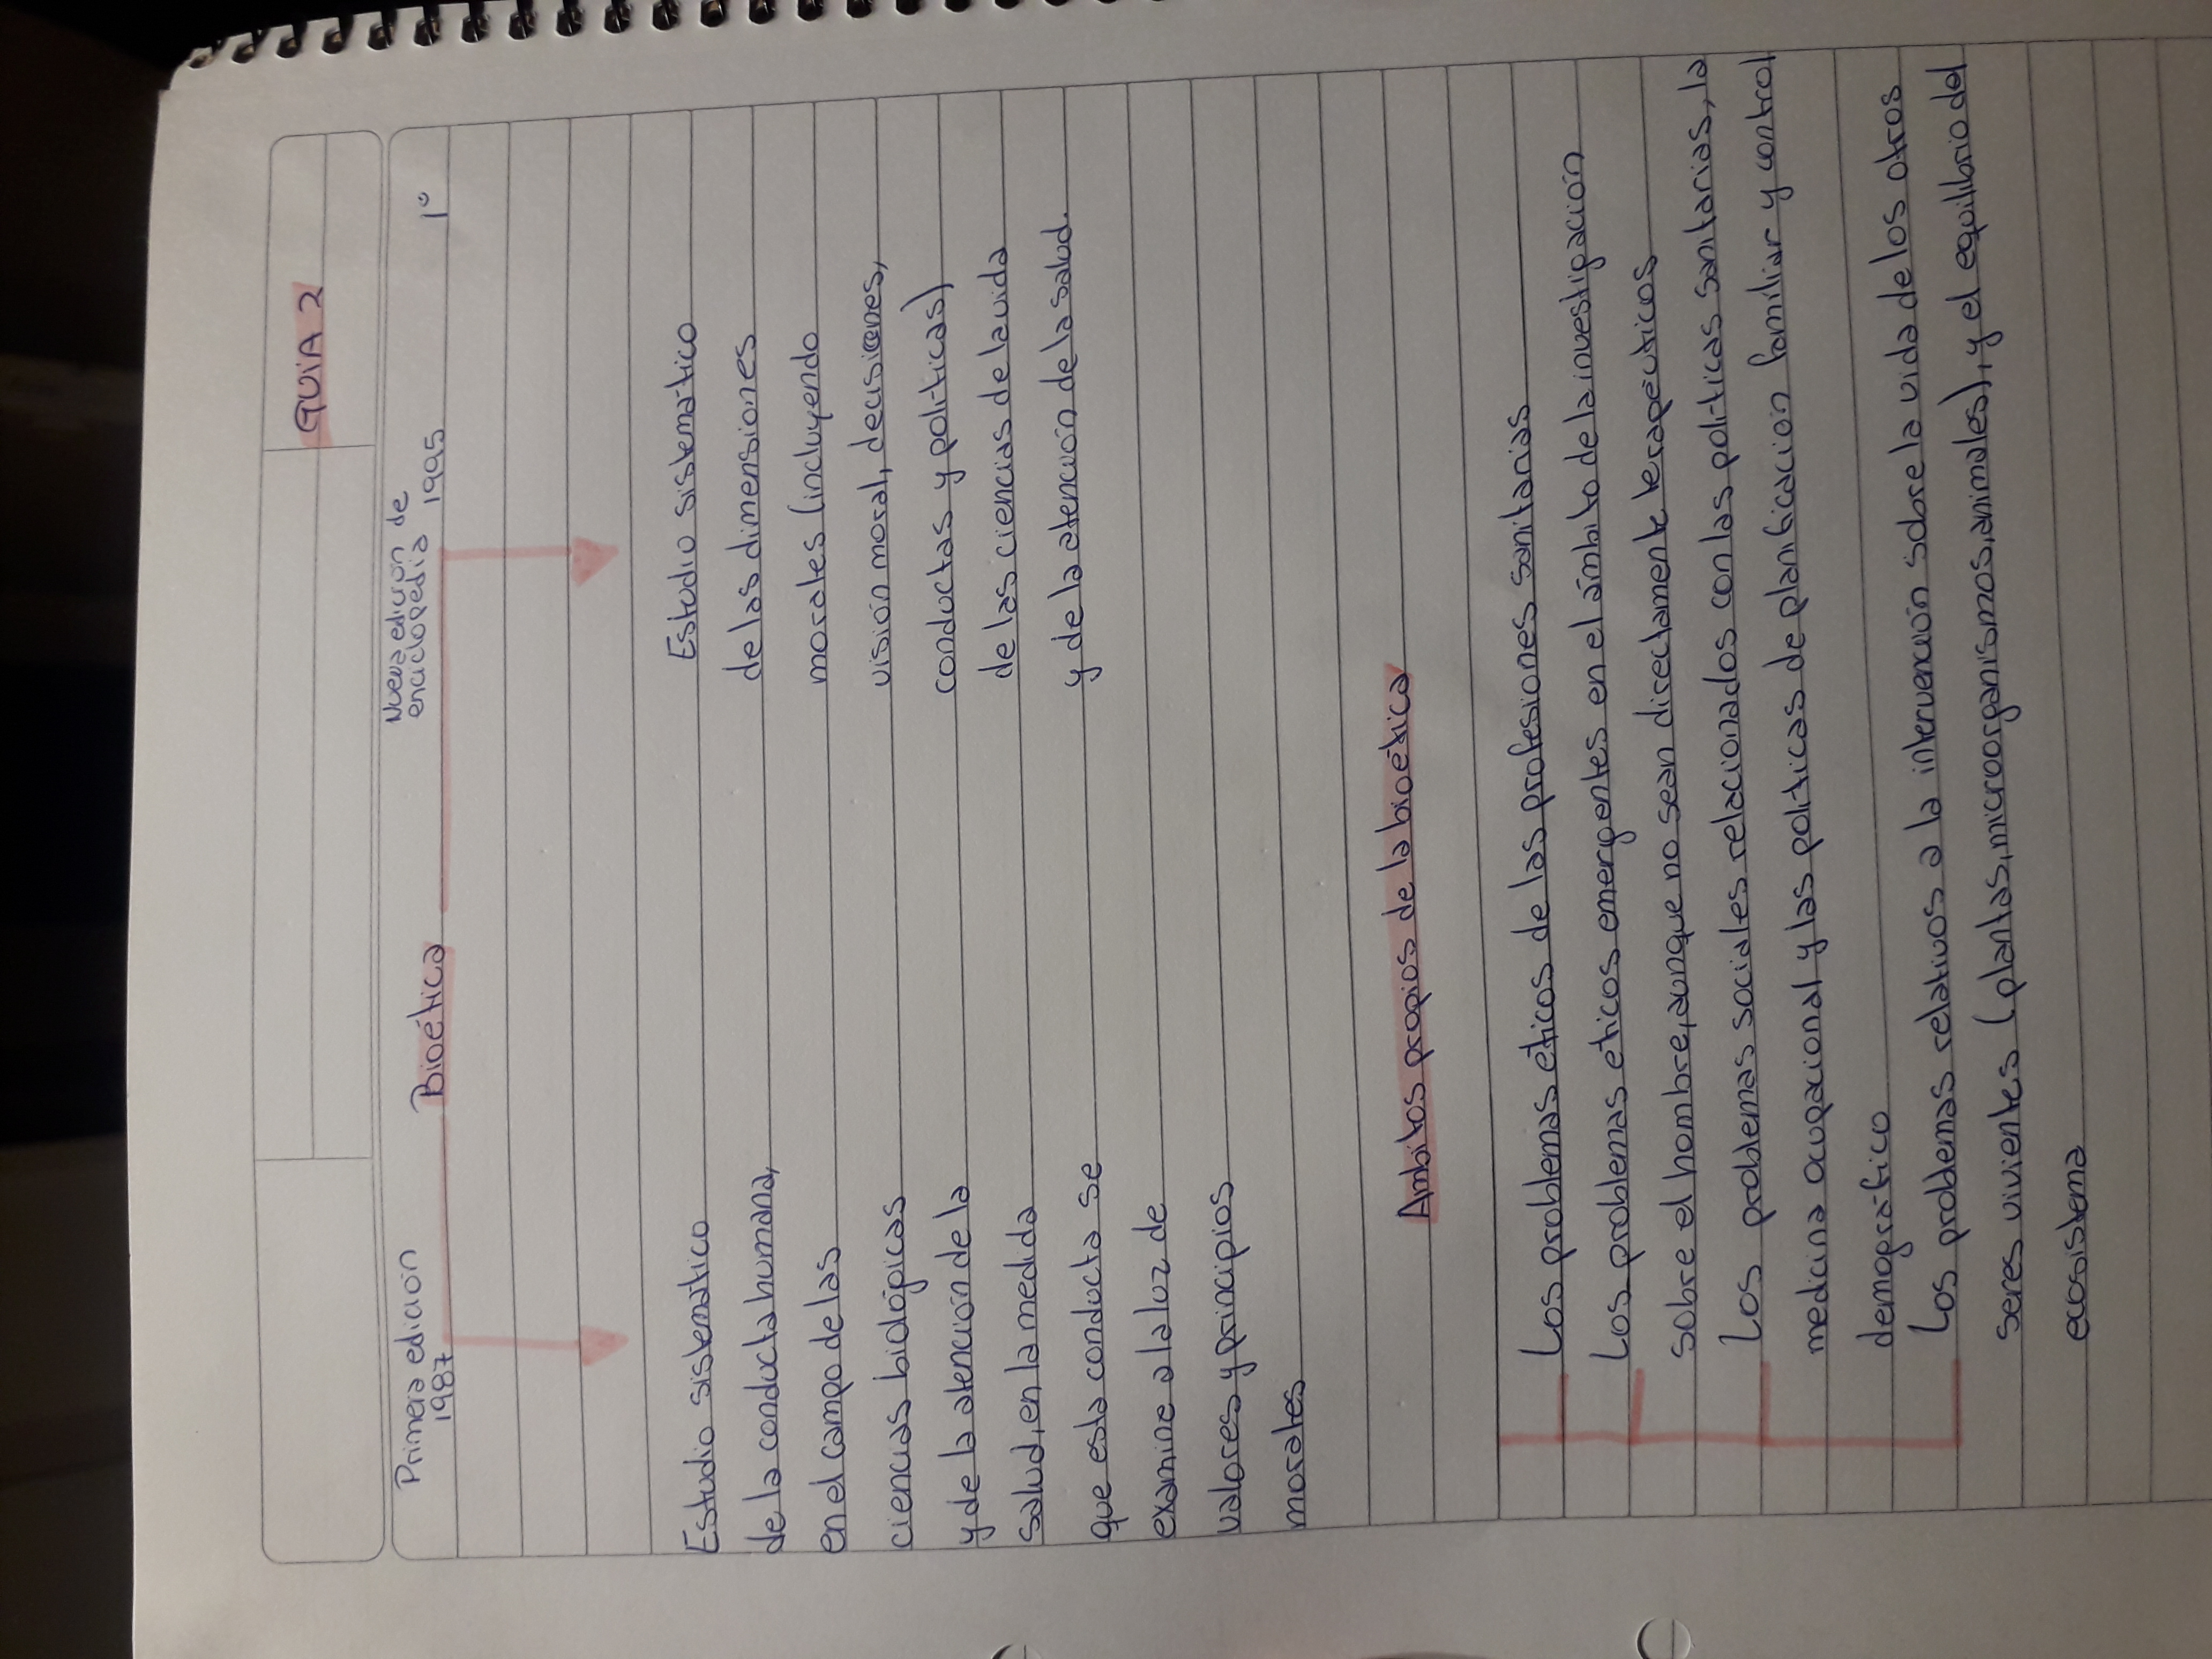 GUIA 2
Primera edición
1987
Bioética
Nueva edición de
enciclopedia 1995
1°
Estudio sistematico
de la conducta humana,
en el campo de las
ciencias biológicas
y de la atención de la
salud, en la medida
que esta conducta se
examine a la luz de
valores y principios
morales
Estudio sistematico
de las dimensiones
morales (incluyendo
visión moral, decisiones,
conductas y politicas)
de las ciencias de la vida
y de la atención de la salud.
Ambitos propios de la bioética
Los problemas éticos de las profesiones sanitarias
Los problemas eticos emergentes en el ámbito de la investigación
sobre el hombre, aunque no sean directamente terapéuticos
Los problemas sociales relacionados con las politicas sanitarias, la
medicina ocupacional y las politicas de planificación familiar y control
demografico
Los problemas relativos a la intervención sobre la vida de los otros
seres vivientes (plantas, microorganismos, animales), y el equilibrio del
ecosistema